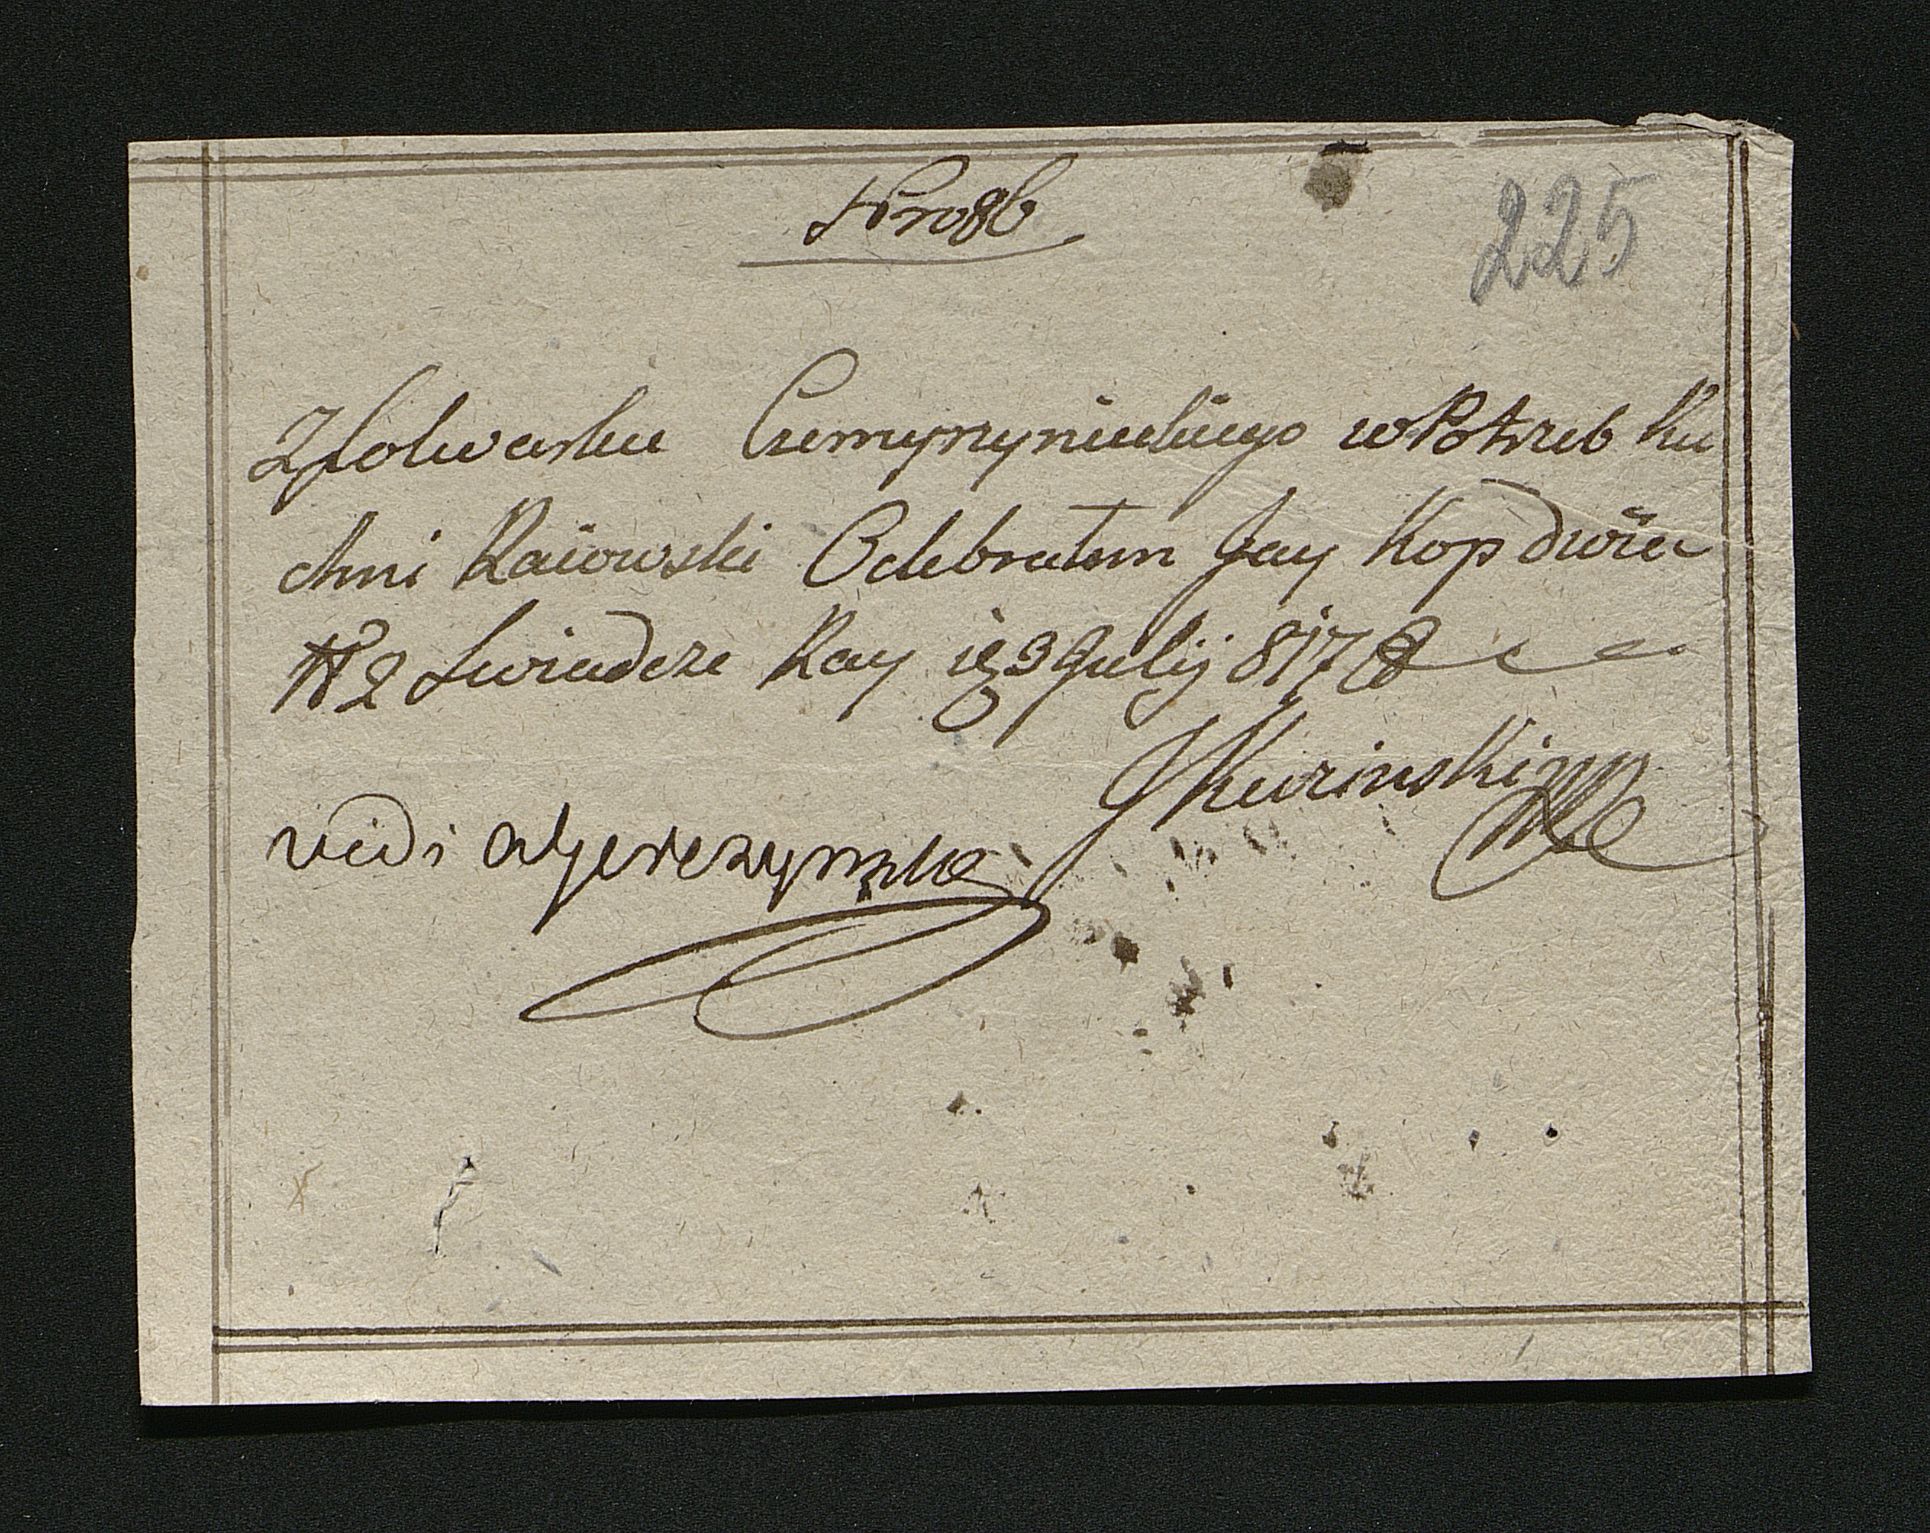 N.ro 86
225
Z folwarku Czemyrynieckiego w Potrzeb ku
chni Raiowski Odebrałem Jay Kop dwie
N 2 Swiadcze Ray 3 Julij 817
JKurinski
vidi